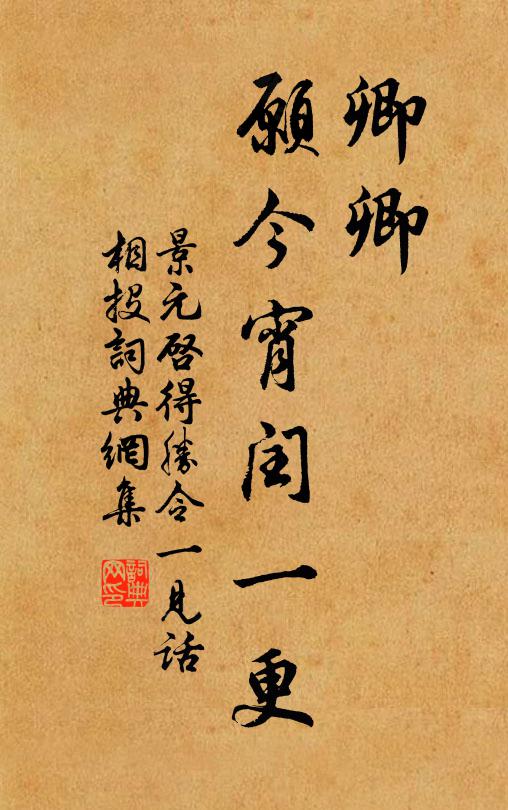 卿卿
願今宵閏一更
景元啓得勝令一見話
相投詞典網集
詞典網印